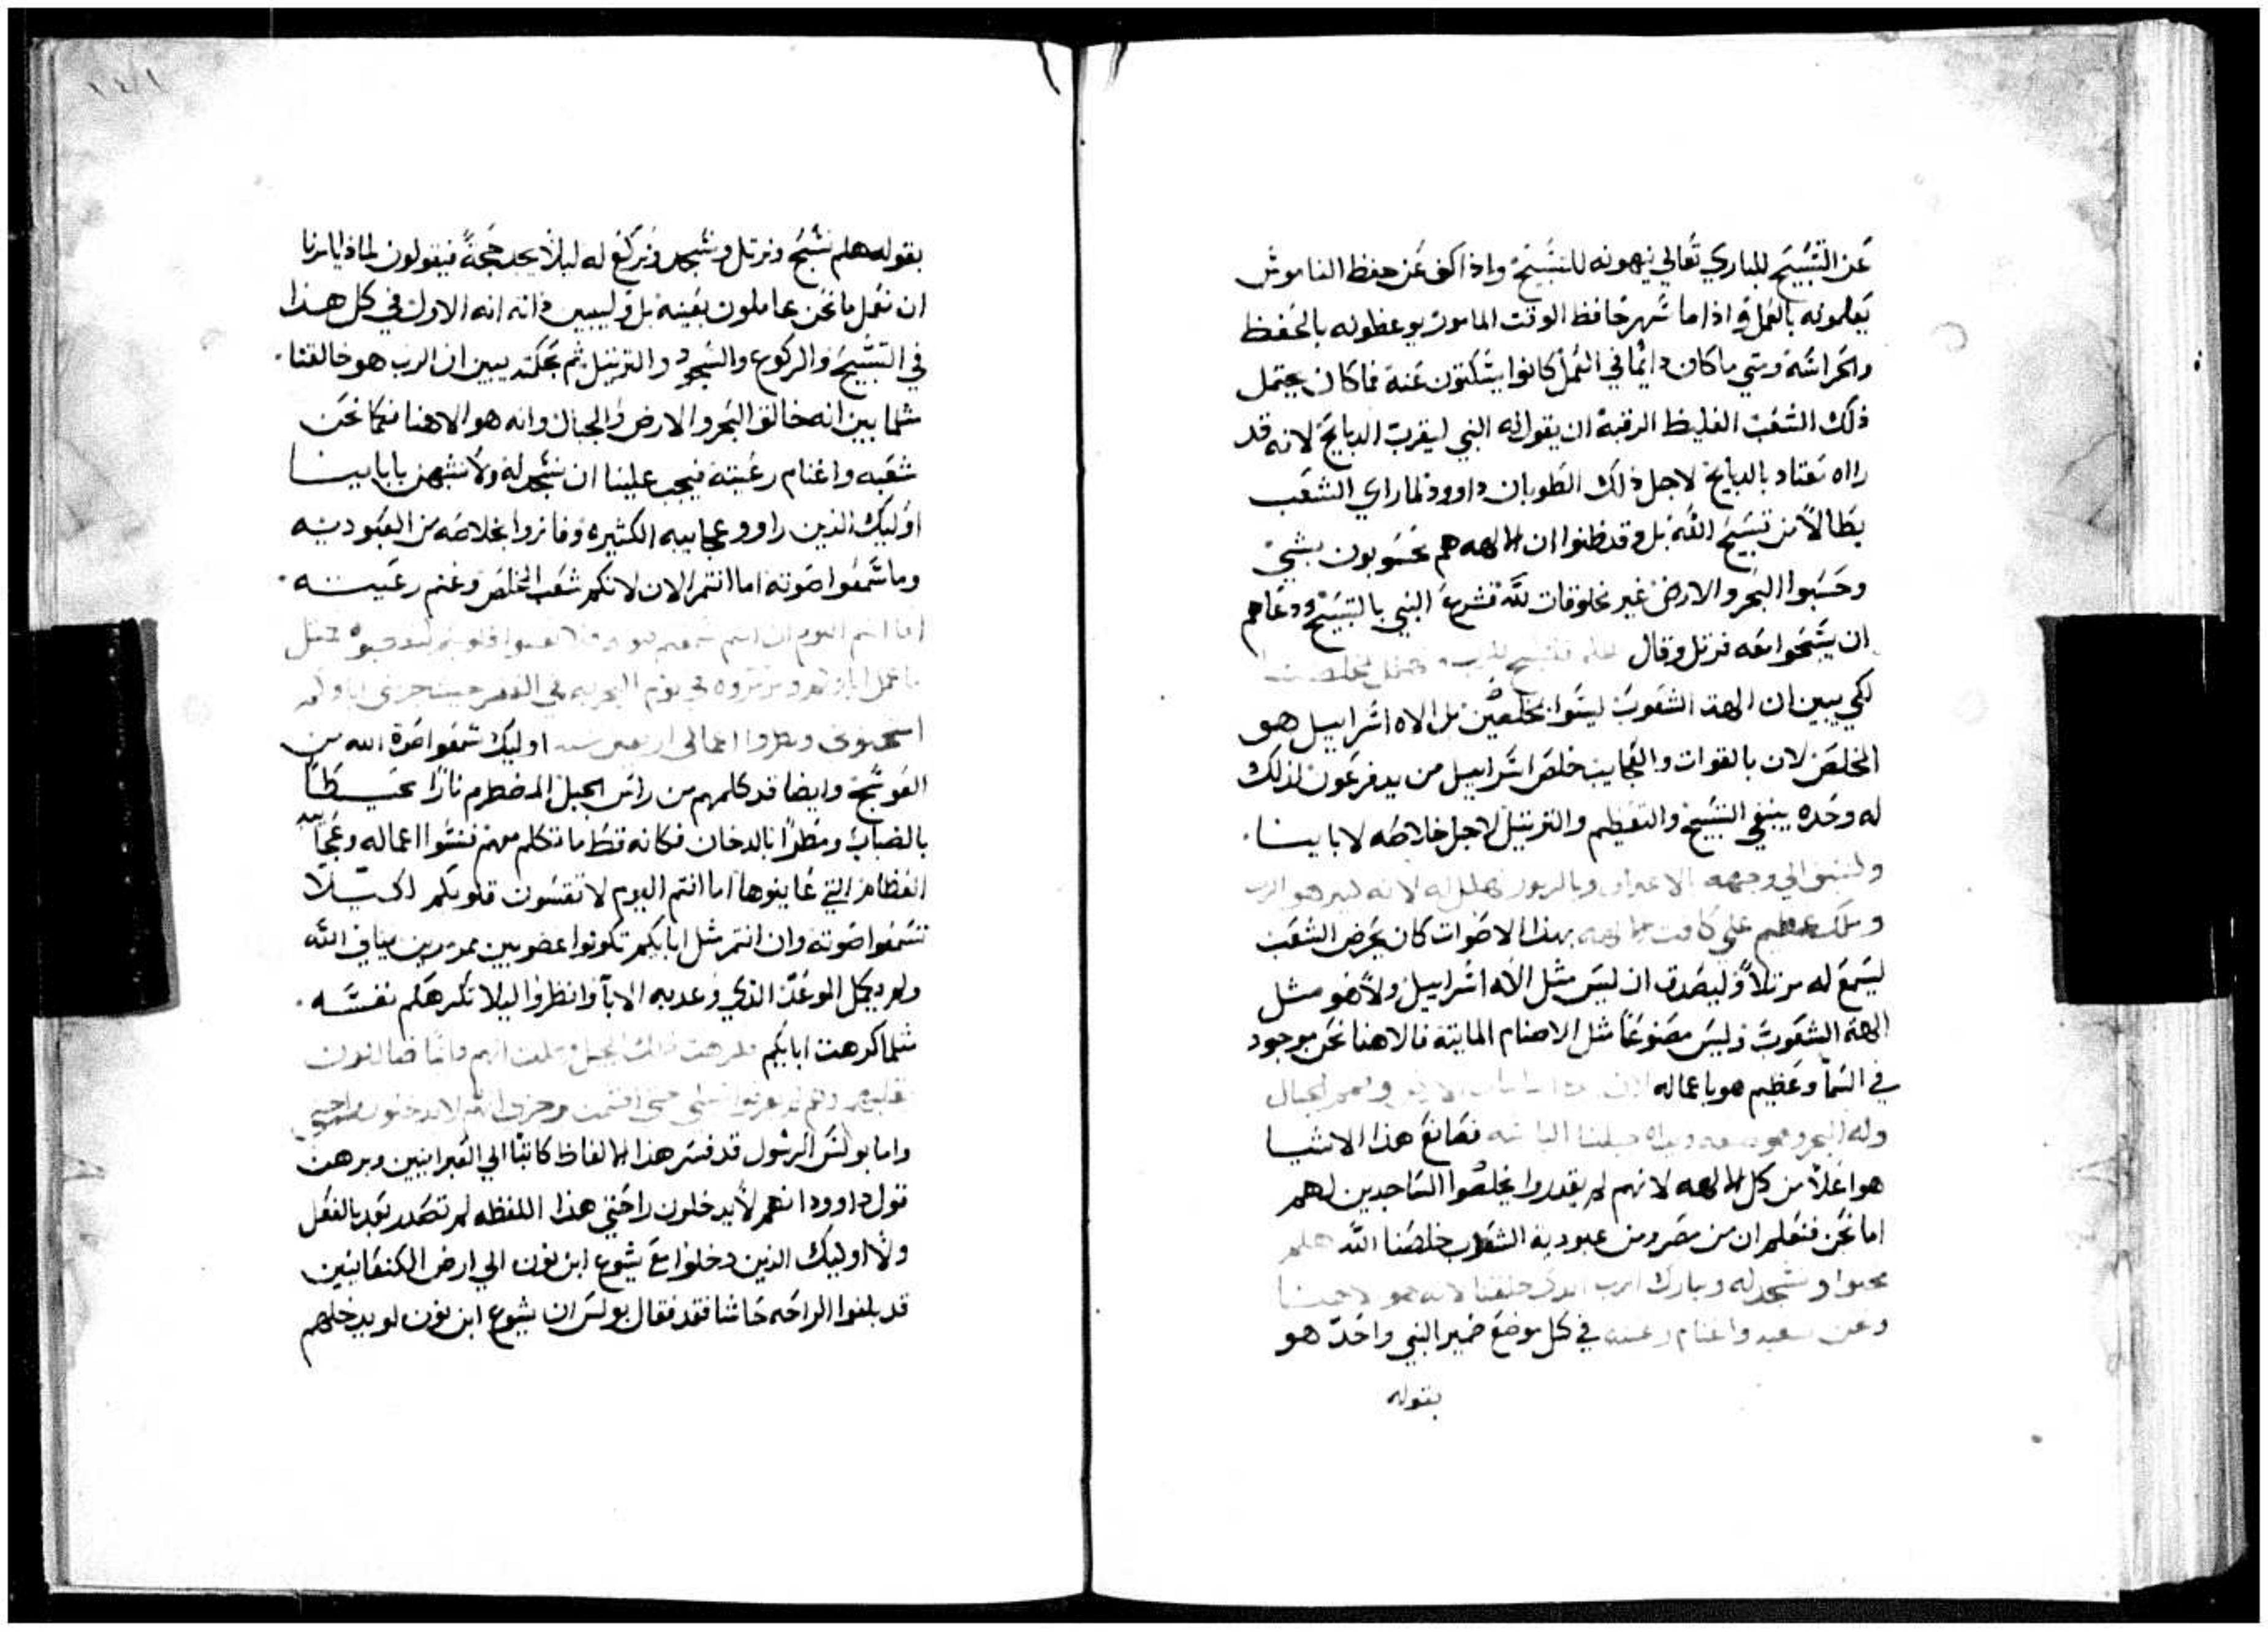 عن التسبيح للباري تعالي ينهونه للتسبيح واذا كف عن حفظ الناموس
يعلمونه بالعمل واذا ما سهر حافظ الوقت المامور يوعظونه بالحفظ
والحراسه ومتي ما كان دايما في العمل كانوا يسكتون عنه فما كان يحتمل
ذلك الشعب الغليظ الرقبة ان يقول له النبي ليقرب الدبايح لانه قد
راه معتاد بالدبايح لاجل ذلك الطوبان داوود لما راي الشعب
بطالاً من تسبيح الله بل وقد ظنوا ان الالهه هم محسوبون بشي
وحسبوا البحر والارض غير مخلوقات لله فشرع النبي بالتسبيح ودعاهم
ان يسبحوا معه فرتل وقال هلم فلنسبح للرب
لكي يبين ان الهة الشعوب ليسوا مخلصين بل الاه اسراييل هو
المخلص لان بالقوات والعجايب خلص اسراييل من يد فرعون لذلك
له وحده ينبغي التسبيح والتعظيم والترتيل لاجل خلاصه لابايينا.
ولنسبق الي وجهه بالاعتراف وبالزبور نهلل له لانه كبير هو الرب
وملك عظيم علي كافت الالهه بهذا الاصوات كان يحرض الشعب
ليسمع له مرتلاً وليصدق ان ليس مثل الاه اسراييل ولا هو مثل
الهة الشعوب وليس مصنوعاً مثل الاصنام المايته فالاهنا نحن موجود
في السما وعظيم هو باعماله
وله البحر وهو صنعه ويداه جبلتا اليابسه فصانع هذا الاشيا
هو اعلا من كل الالهه لانهم لم يقدروا يخلصوا الساجدين لهم
اما نحن فنعلم ان من مصر ومن عبودية الشعوب خلصنا الله هلم
نجثوا ونسجد له ونبارك الرب الذي خلقنا لانه هو الاهنا
ونحن شعبه واغنام رعيته في كل موضع ضمير النبي واحد هو
بقوله
بقوله هلم نسبح ونرتل ونسجد ونركع له ليلاً يجد حجة فيقولون لماذا يامرنا
ان نعمل ما نحن عاملون بعينه بل وليبين ذاته انه الاول في كل هذا
في التسبيح والركوع والسجود والترتيل ثم بحكمة يبين ان الرب هو خالقنا.
مثلما بين انه خالق البحر والارض والجبال وانه هو الاهنا فكما نحن
شعبه واغنام رعيته فيجب علينا ان نسجد له ولا نتشبه بابايينا
اوليك الذين راوو عجايبه الكثيره وفازوا بخلاصه من العبوديه
وما سمعوا صوته اما انتم الان لانكم شعب المخلص وغنم رعيته.
اما انتم اليوم ان انتم سمعتم صوته فلا تقسوا قلوبكم لتغضبوه مثل
ما عمل اباوكم
امتحنوني ونظروا اعمالي اربعين سنه اوليك سمعوا صوت الله من
العوسجة وايضا قد كلمهم من راس الجبل المضطرم ناراً محيطاً
بالضباب ومظلاً بالدخان فكانه قط ما تكلم معهم فنسوا اعماله وعجايبه
العظام التي عاينوها اما انتم اليوم لا تقسون قلوبكم لكيلا
تسمعوا صوته وان انتم مثل ابايكم تكونوا عضوبين ممررين ميثاق الله
ولم يكمل الوعد الذي وعد به الابا وانظروا ليلا تكرهكم نفسه.
مثلما كرهت ابايكم
بقلبهم وهم لم يعرفوا سبلي حتي اقسمت برجزي انهم لا يدخلون راحتي
واما بولس الرسول قد فسر هذا الالفاظ كاتباً الي العبرانيين وبرهن
قول داوود انهم لا يدخلون راحتي هذا اللفظه لم تصدر بعد بالفعل
ولا اوليك الذين دخلوا مع يشوع ابن نون الي ارض الكنعانيين
قد بلغوا الراحه حاشا فقد فقال بولس ان يشوع ابن نون لو يدخلهم